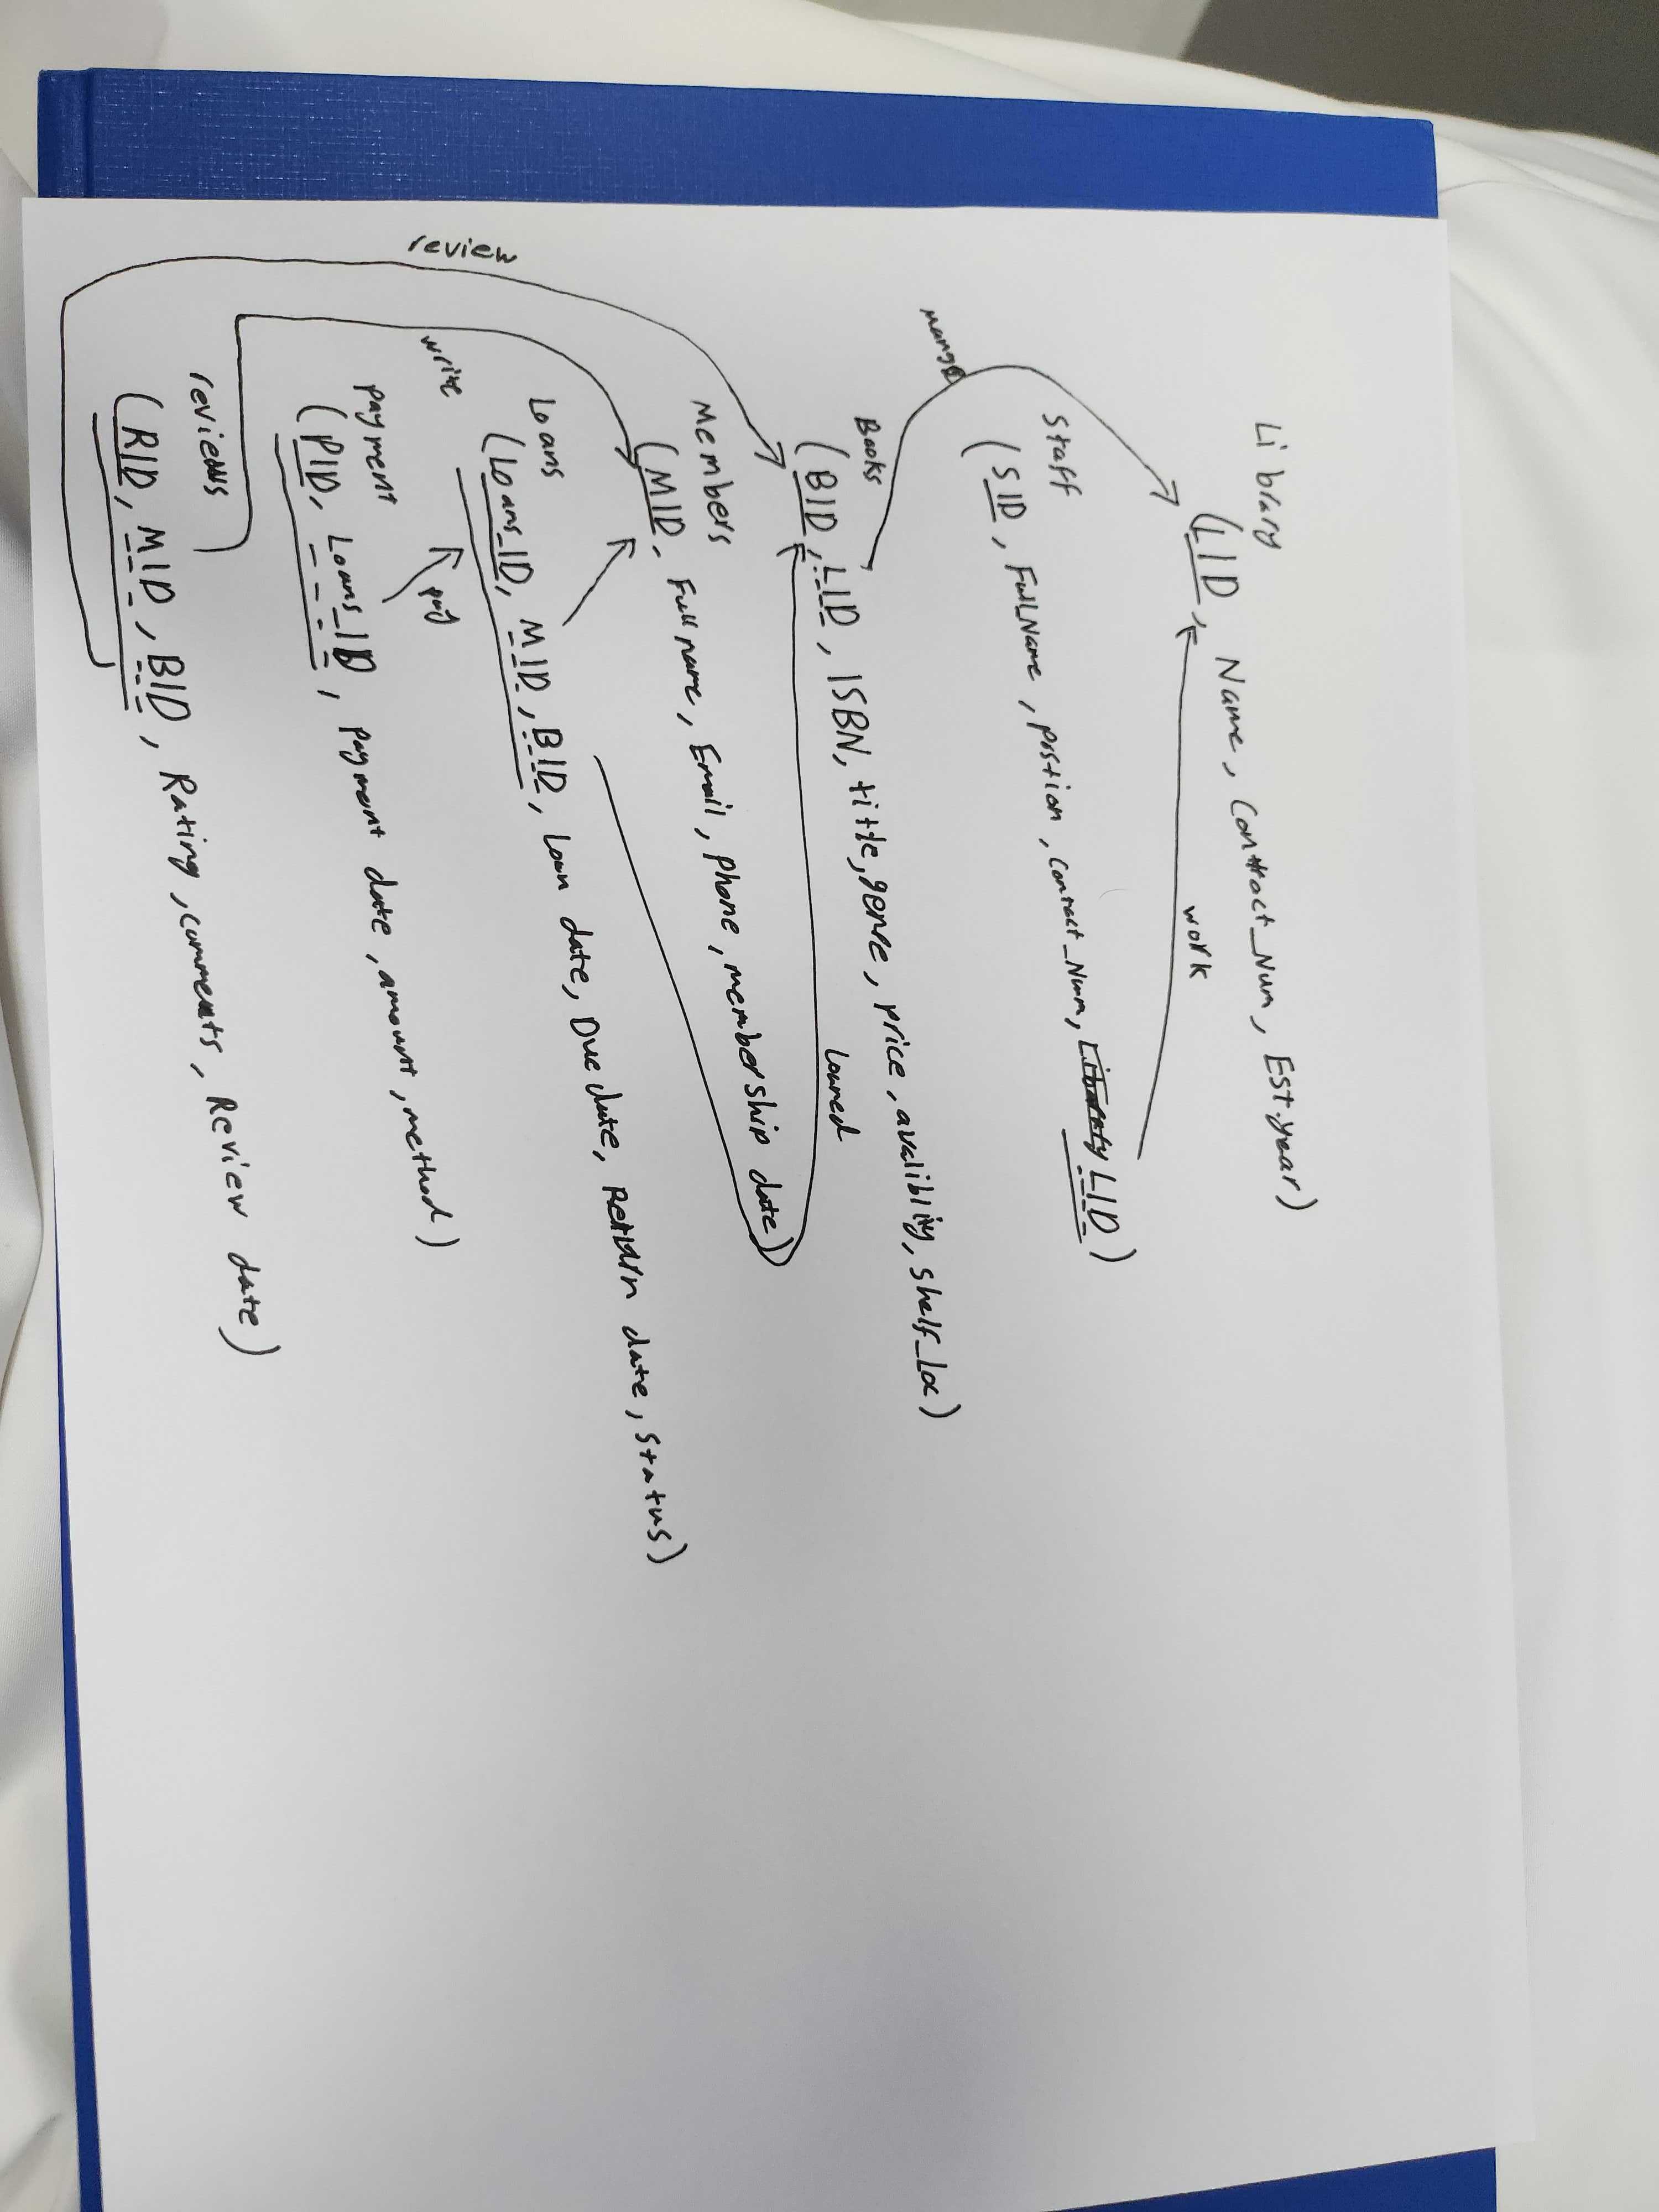 Library
(LID, Name, Conttact_Num, Est.year)
work
Staff
(SID, Full_Name, postion, contact_Num, LID)
Books
(BID, LID, ISBN, tittle, genre, price, avalibliy, shelf_loc)
loaned
Members
(MID, Full name, Email, phone, membership date)
review
Loans
(Loans_ID, MID, BID, Loan date, Due date, Return date, status)
write
pay
payment
(PID, Loans_ID, payment date, amount, method)
reviews
(RID, MID, BID, Rating, comments, Review date)